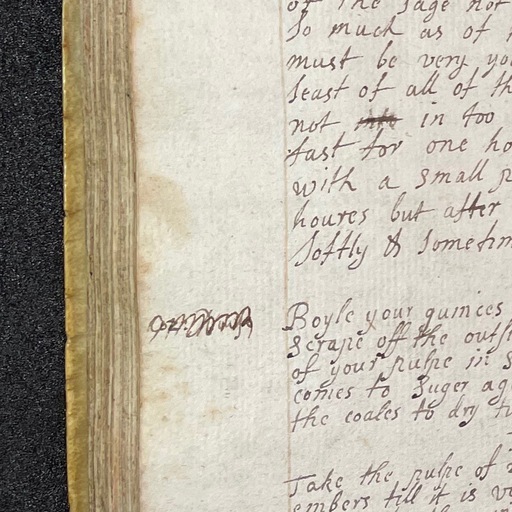 of the sage not
so much as of
must be very yo
least of all of th
not in too
fast for one ho
with a small p
houres but after
softly & sometim
Boyle your quinces
scrape off the outsi
of your pulpe in s
comes to suger aga
the coales to dry tu
Take the pulpe of
embers till it is ve